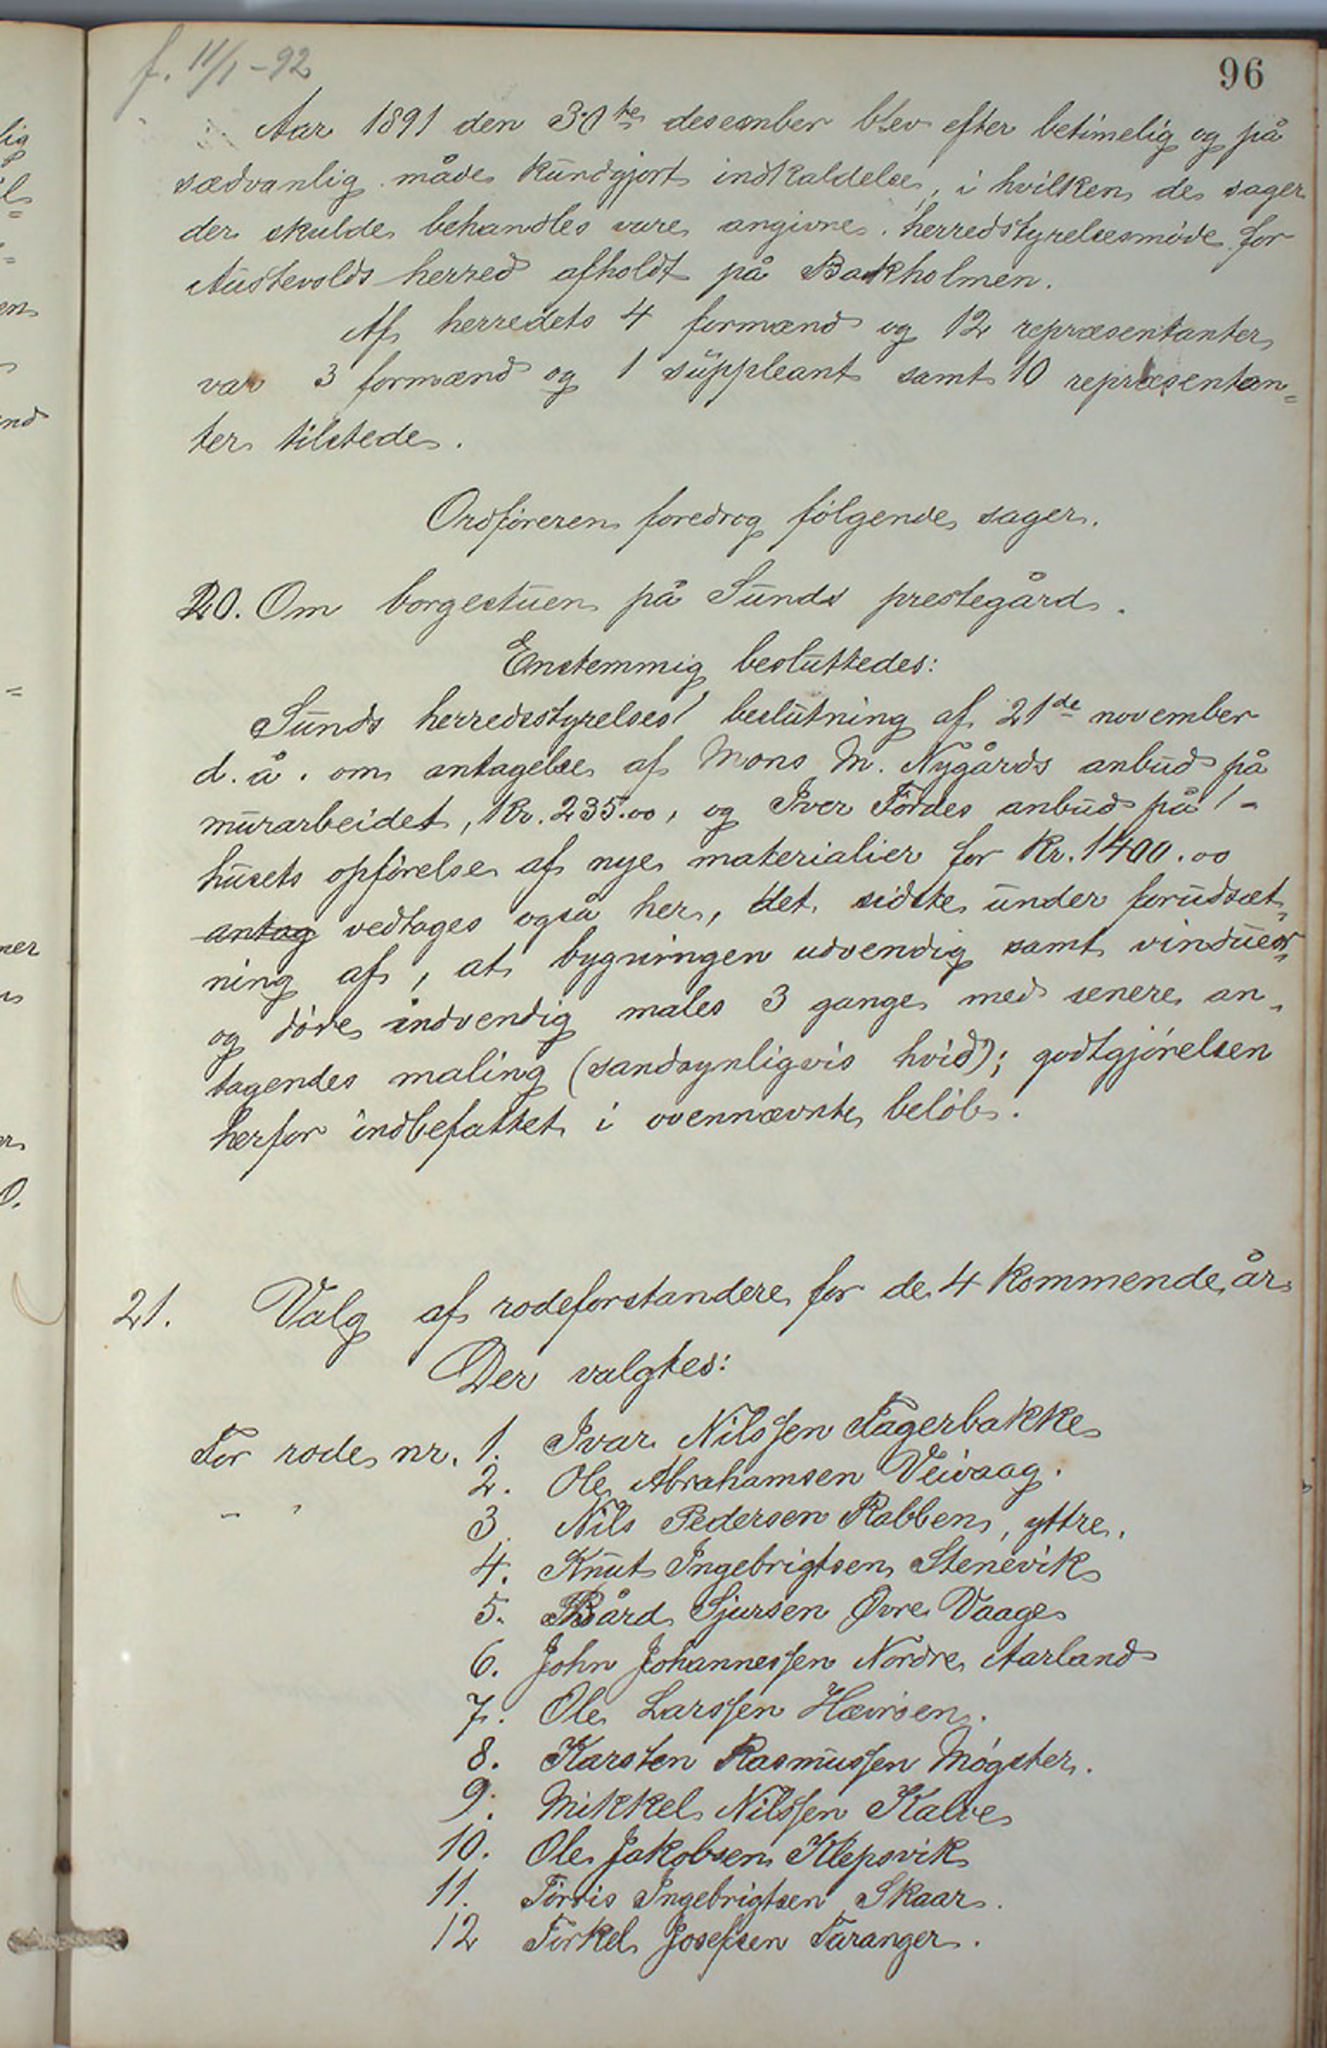 f. 11/1 - 92
96
Aar 1891 den 30te desember blev efter betimelig og på
sædvanlig måde kundgjort indkaldelse, i hvilken de sager
der skulde behandles vare angivne, herredstyrelsesmøde for
Austevolds herred afholdt på Bakholmen.
Af herredets 4 formænd og 12 repræsentanter
var 3 formænd og 1 suppleant samt 10 repræsentan=
ter tilstede.
Ordføreren foredrog følgende sager.
20. Om borgestuen på Sunds prestegård.
Enstemmig besluttedes:
Sunds herredsstyrelses beslutning af 21de november
d. å. om antagelse af Mons M. Nygårds anbud på
murarbeidet, Kr. 235.00, og Iver Førdes anbud på
husets opførelse af nye materialier for Kr. 1400.00
antag vedtages også her, det sidste under forudsæt=
ning af, at bygningen udvendig samt vinduer
og døre indvendig males 3 gange med senere an=
tagendes maling (sandsynligvis hvid); godtgjørelsen
herfor indbefattet i ovennævnte beløb.
21. Valg af rodeforstandere for de 4 kommende år
Der valgtes:
For rode nr. 1. Ivar Nilssen Fagerbakke
2. Ole Abrahamsen Veivaag.
- " 3. Nils Pedersen Rabben, yttre.
4. Knut Ingebrigtsen Stenevik
5. Bård Sjursen Øvre Vaage
6. John Johannessen Nordre Aarland
7. Ole Larssen Hævrøen.
8. Karsten Rasmussen Møgster.
9. Mikkel Nilssen Kalve
10. Ole Jakobsen Klepsvik
11. Tørris Ingebrigtsen Skaar.
12 Torkel Josefsen Taranger.